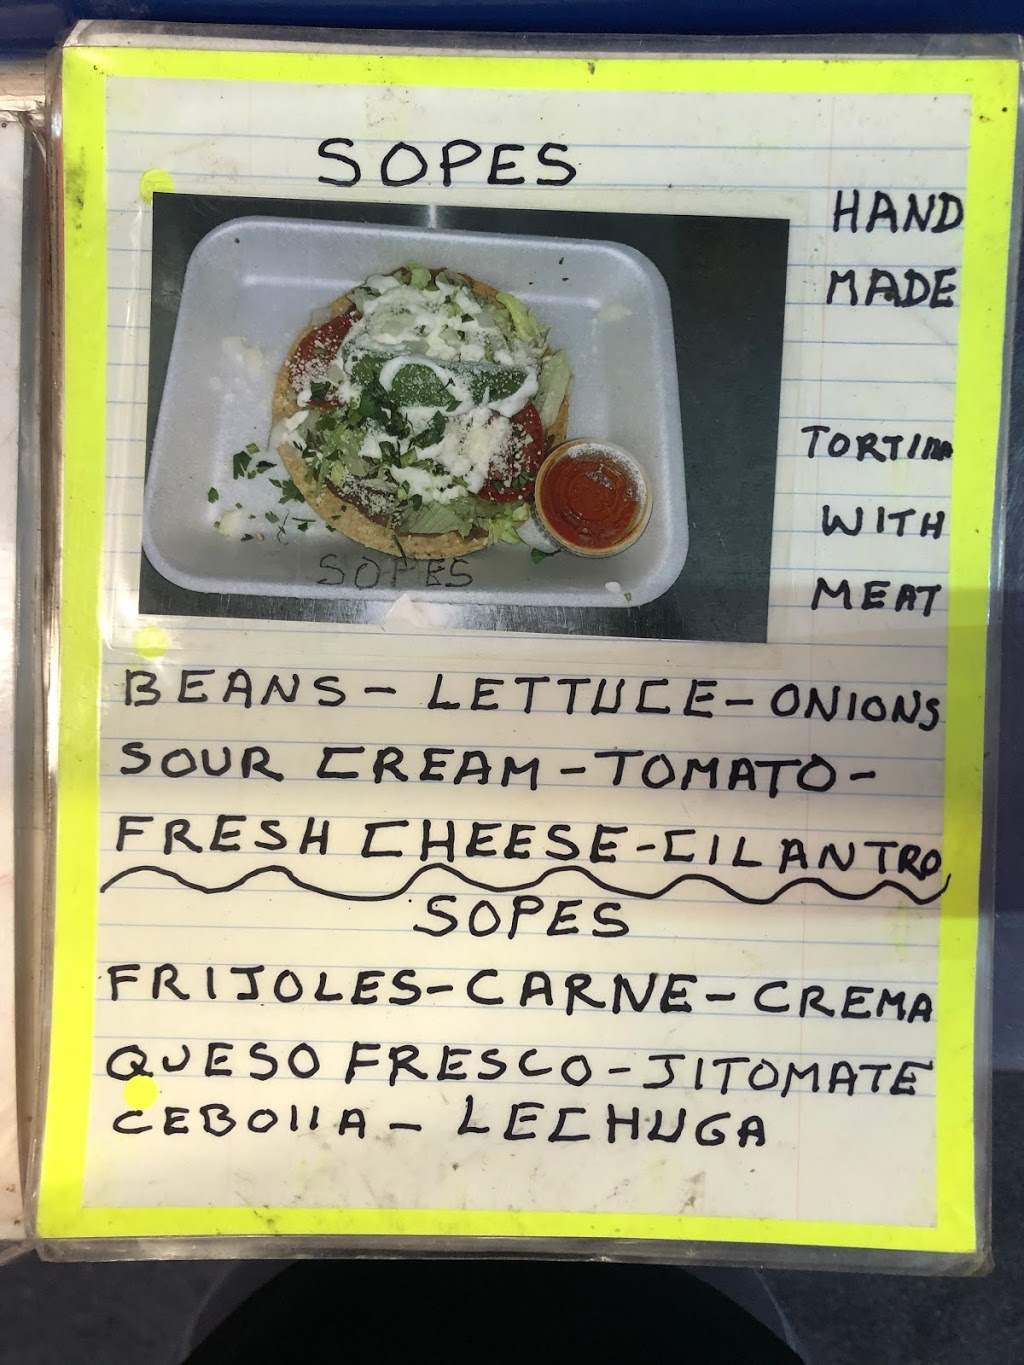 SOPES
HAND
MADE
TORTIllA
WITH
MEAT
SOPES
BEANS - LETTUCE - ONIONS
SOUR CREAM - TOMATO -
FRESH CHEESE - CILANTRO
SOPES
FRIJOLES - CARNE - CREMA
QUESO FRESCO - JITOMATE
CEBOllA - LECHUGA